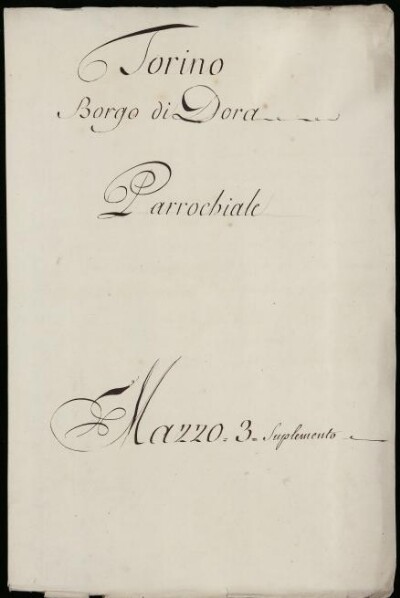 Torino
Borgo di Dora
Parrochiale
Mazzo. 3. Suplemento